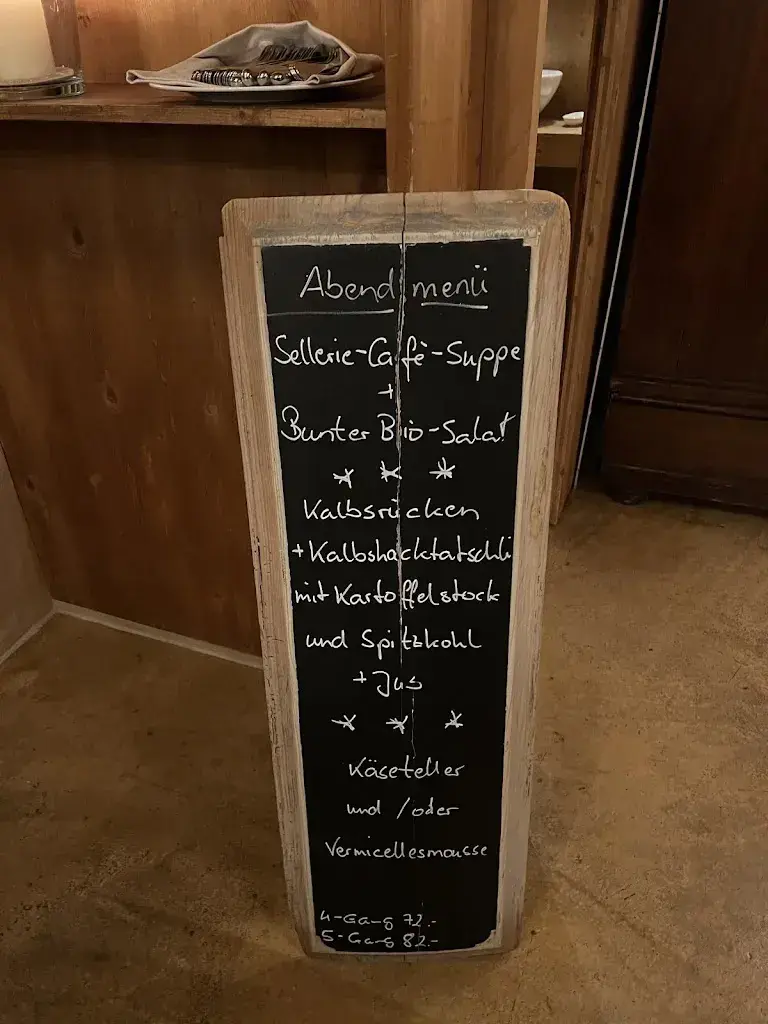 Abendmenü
Sellerie-Cafè-Suppe
+
Bunter Bio-Salat
* * *
Kalbsrücken
+Kalbshacktätschli
mit Kartoffelstock
und Spitzkohl
+ Jus
* * *
Käseteller
und / oder
Vermicellesmousse
4-Gang 72.-
5-Gang 82.-